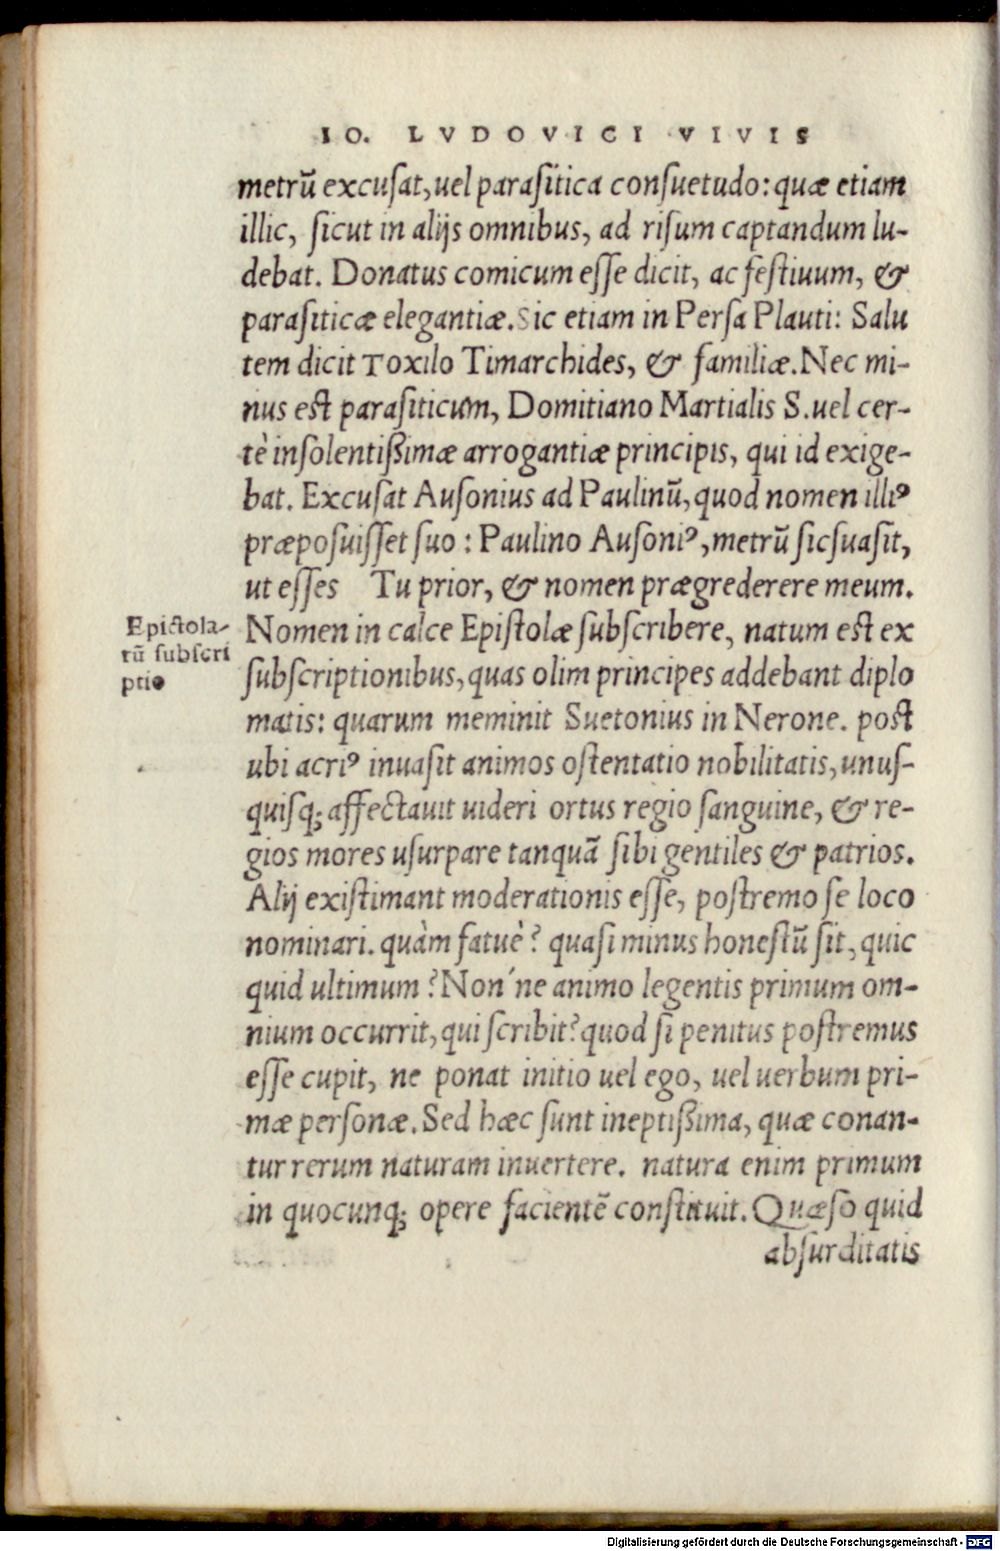 IO. LVDOVICI VIVIS
metrũ excuſat, uel paraſitica conſuetudo: quæ etiam
illic, ſicut in alijs omnibus, ad riſum captandum lu-
debat. Donatus comicum eſſe dicit, ac feſtiuum, &
paraſiticæ elegantiæ. Sic etiam in Perſa Plauti: Salu
tem dicit Toxilo Timarchides, & familiæ. Nec mi-
nus eſt paraſiticum, Domitiano Martialis S. uel cer-
tè inſolentißimæ arrogantiæ principis, qui id exige-
bat. Excuſat Auſonius ad Paulinũ, quod nomen illiꝰ
præpoſuiſſet ſuo: Paulino Auſoniꝰ, metrũ ſic ſuaſit,
ut eſſes Tu prior, & nomen prægrederere meum.
Epiſtola-
rũ ſubſcri
ptio
Nomen in calce Epiſtolæ ſubſcribere, natum eſt ex
ſubſcriptionibus, quas olim principes addebant diplo
matis: quarum meminit Suetonius in Nerone. poſt
ubi acriꝰ inuaſit animos oſtentatio nobilitatis, unuſ-
quiſq; affectauit uideri ortus regio ſanguine, & re-
gios mores uſurpare tanquã ſibi gentiles & patrios.
Alij exiſtimant moderationis eſſe, poſtremo ſe loco
nominari. quàm fatuè? quaſi minus honeſtũ ſit, quic
quid ultimum? Non´ne animo legentis primum om-
nium occurrit, qui ſcribit? quod ſi penitus poſtremus
eſſe cupit, ne ponat initio uel ego, uel uerbum pri-
mæ perſonæ. Sed hæc ſunt ineptißima, quæ conan-
tur rerum naturam inuertere. natura enim primum
in quocunq; opere facientẽ conſtituit. Quæſo quid
abſurditatis
Digitalisierung gefördert durch die Deutsche Forschungsgemeinschaft - DFG